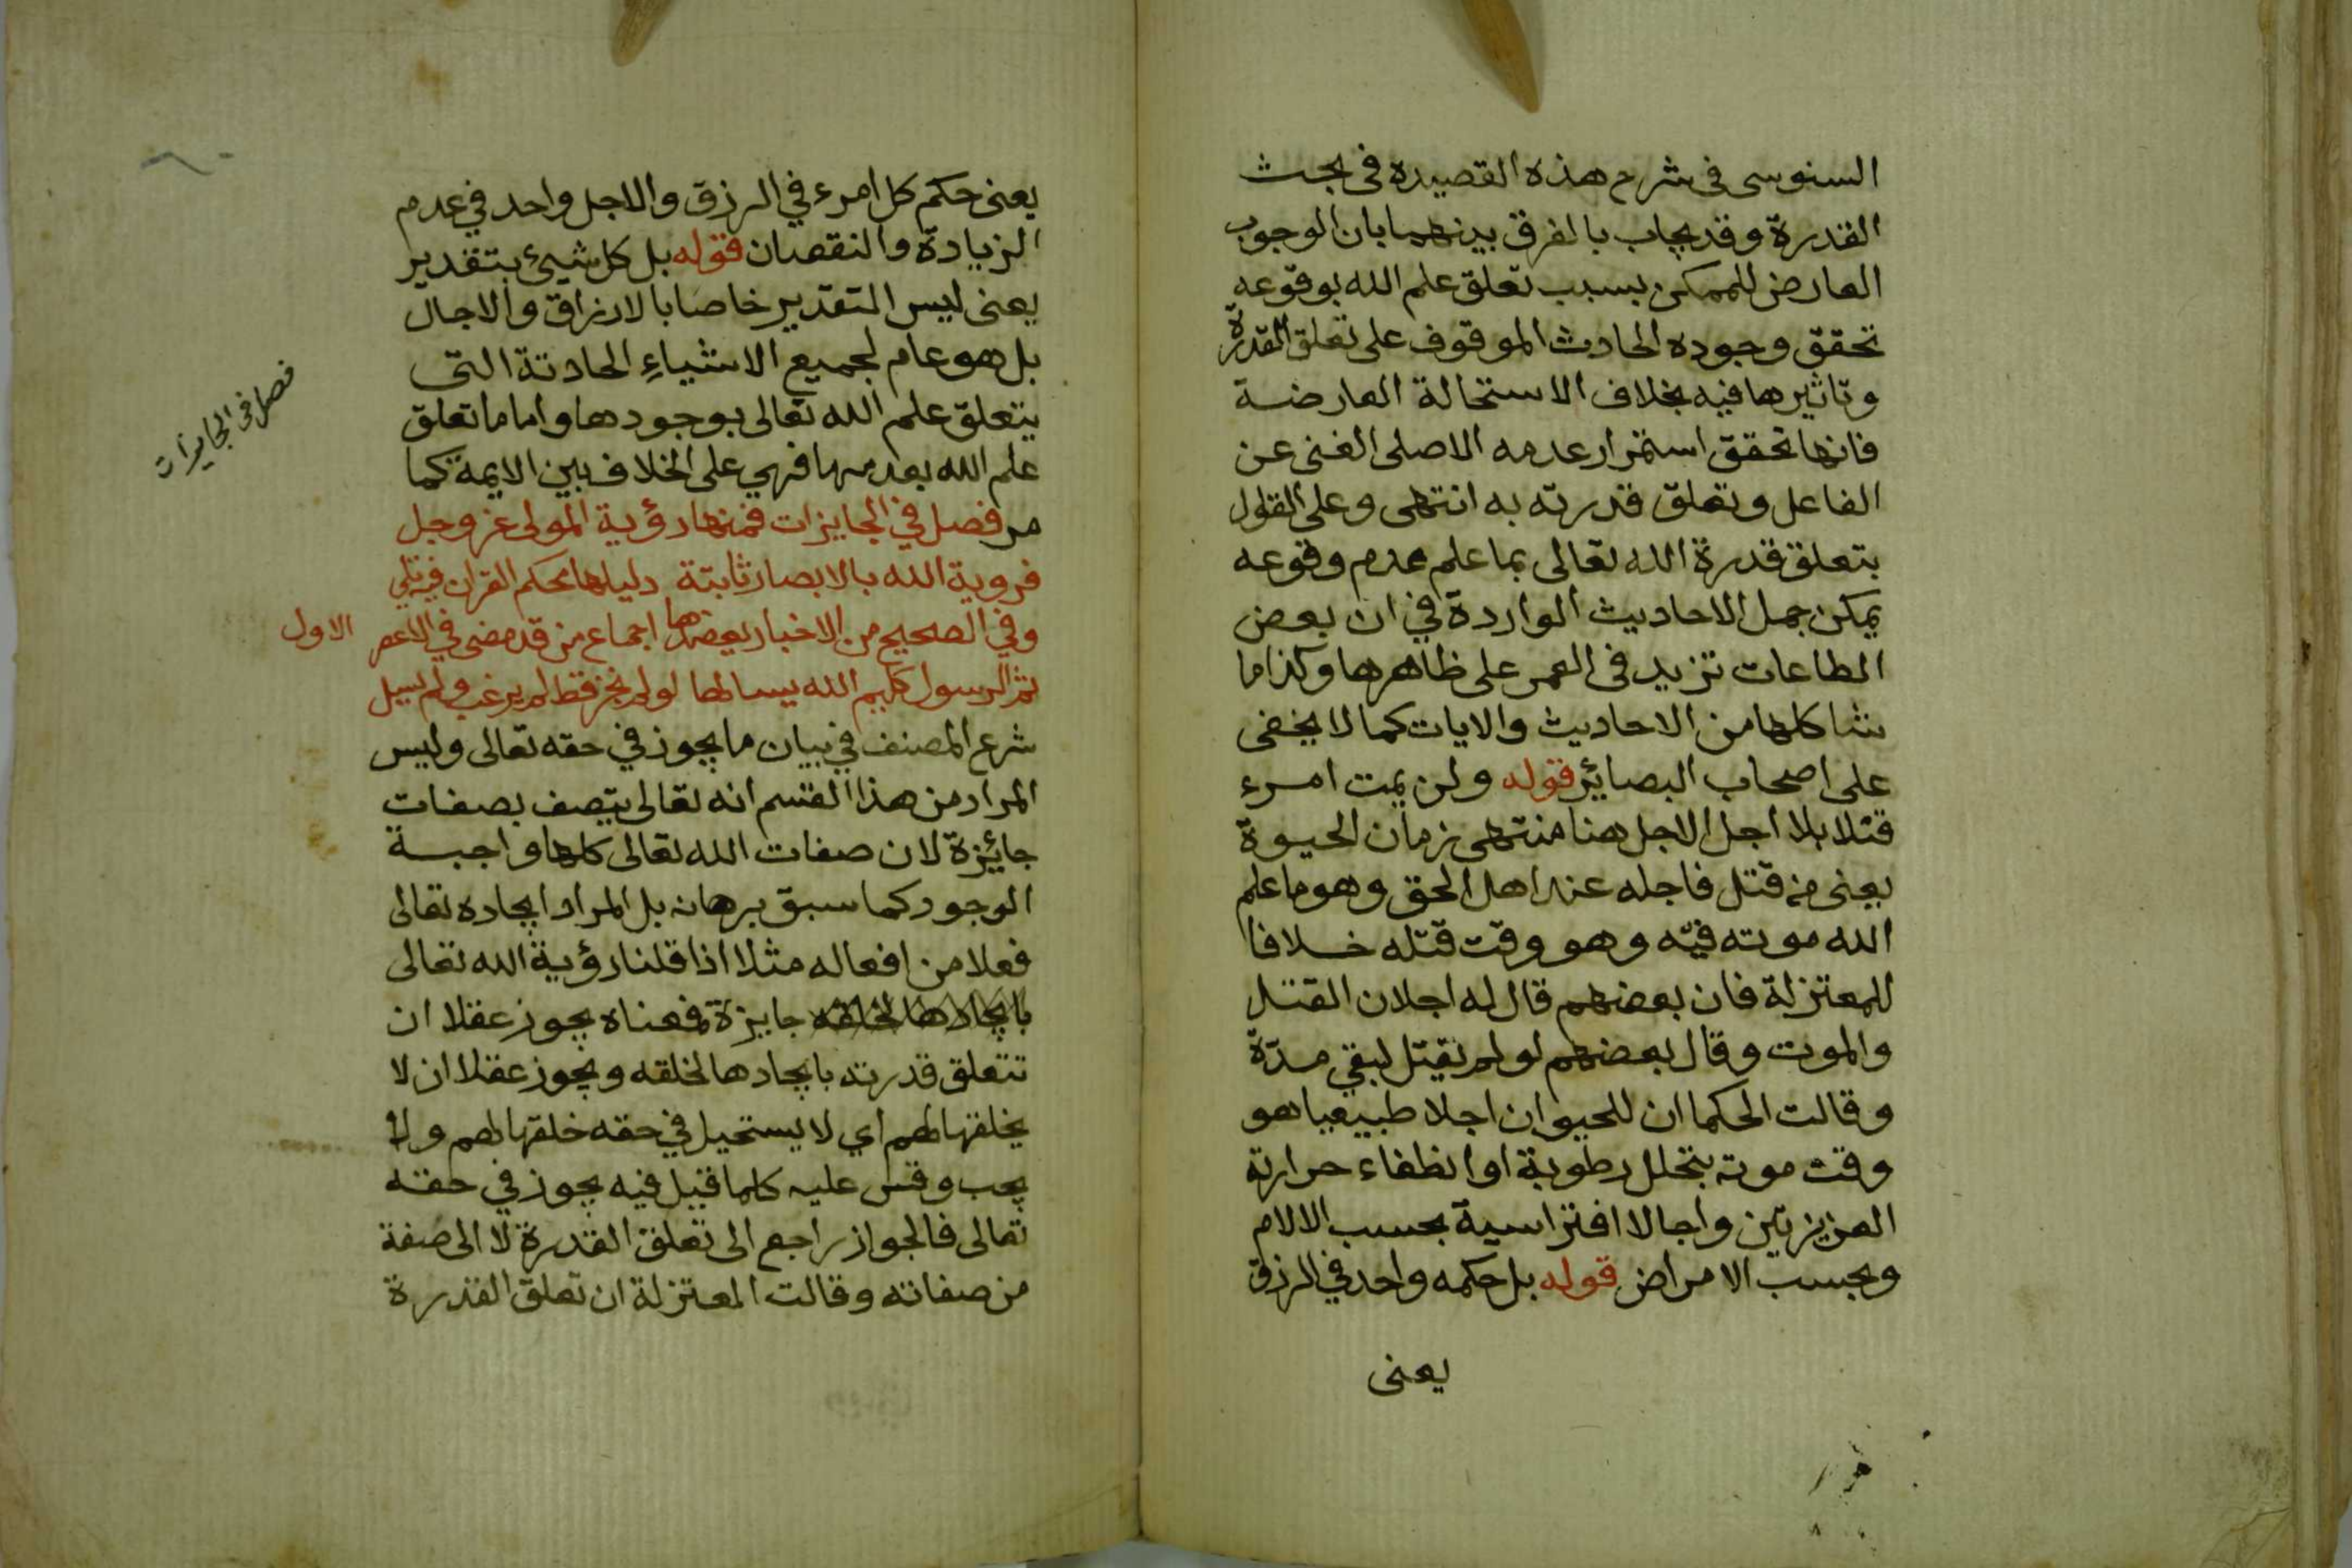 السنوسى فى شرح هذه القصيدة فى بحث
القدرة وقد يجاب بالفرق بينهما بان الوجوب
العارض للممكن بسبب تعلق علم الله بوقوعه
تحقق وجوده الحادث الموقوف على تعلق القدرة
وتاثيرها فيه بخلاف الاستحالة العارضة
فانها تحقق استمرار عدمه الاصلى الغنى عن
الفاعل وتعلق قدرته به انتهى وعلى القول
بتعلق قدرة الله تعالى بما علم عدم وقوعه
يمكن حمل الاحاديث الواردة في ان بعض
الطاعات تزيد فى العمر على ظاهرها وكذا ما
شاكلها من الاحاديث والايات كما لا يخفى
على اصحاب البصائر قوله ولن يمت امرء
قتلا بلا اجل الاجل هنا منتهى زمان الحيوة
يعنى من قتل فاجله عند اهل الحق وهو ما علم
الله موته فيه وهو وقت قتله خلافا
للمعتزلة فان بعضهم قال له اجلان القتل
والموت وقال بعضهم لو لم يقتل لبقي مدة
وقالت الحكما ان للحيوان اجلا طبيعيا هو
وقت موته بتحلل رطوبة او انطفاء حرارته
العزيزتين واجالا افتراسية بحسب الالام
وبحسب الامراض قوله بل حكمه واحد في الرزق
يعنى
يعنى حكم كل امرء في الرزق والاجل واحد في عدم
الزيادة والنقصان قوله بل كل شيئ بتقدير
يعنى ليس التقدير خاصا بالارزاق والاجال
بل هو عام لجميع الاشياء الحادثة التى
يتعلق علم الله تعالى بوجودها واما ما تعلق
علم الله بعدمها فهي على الخلاف بين الايمة كما
مر فصل في الجايزات فمنها رؤية المولى عز وجل
فروية الله بالابصار ثابتة دليلها محكم القران فيه تلي
وفي الصحيح من الاخبار يعضدها اجماع من قد مضى في الاعصر الاول
ثم الرسول كليم الله يسالها لو لم تجز قط لم يرغب ولم يسل
شرع المصنف في بيان ما يجوز في حقه تعالى وليس
المراد من هذا القسم انه تعالى يتصف بصفات
جائزة لان صفات الله تعالى كلها واجبة
الوجود كما سبق برهانه بل المراد ايجاده تعالى
فعلا من افعاله مثلا اذا قلنا رؤية الله تعالى
بايجادها لخلقه جايزة فمعناه يجوز عقلا ان
تتعلق قدرته بايجادها لخلقه ويجوز عقلا ان لا
يخلقها لهم اي لا يستحيل في حقه خلقها لهم ولا
يجب وقس عليه كلما قيل فيه يجوز في حقه
تعالى فالجواز راجع الى تعلق القدرة لا الى صفة
من صفاته وقالت المعتزلة ان تعلق القدرة
فصل فى الجايزات